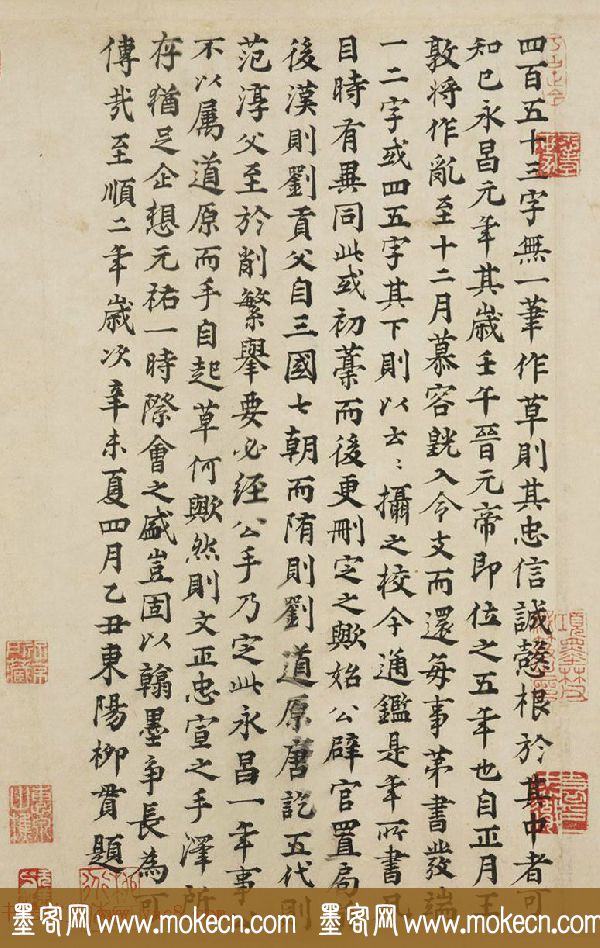 四百五十三字無一筆作草則其忠信誠慤根於其中者可
知已永昌元年其歲壬午晉元帝即位之五年也自正月王
敦將作亂至十二月慕容皝入令支而還每事第書發端
一二字或四五字其下則以云：攝之校今通鑑是年所書凡
目時有異同此或初藁而後更刪定之歟始公辟官置局
後漢則劉貢父自三國七朝而隋則劉道原唐訖五代則
范淳父至於削繁舉要必經公手乃定此永昌一年事
不以属道原而手自起草何歟然則文正忠宣之手澤所
存猶足企想元祐一時際會之盛豈固以翰墨爭長為可
傳哉至順二年歲次辛未夏四月乙丑東陽柳貫題
墨客网 www.mokecn.com 墨客网 www.mokecn.com